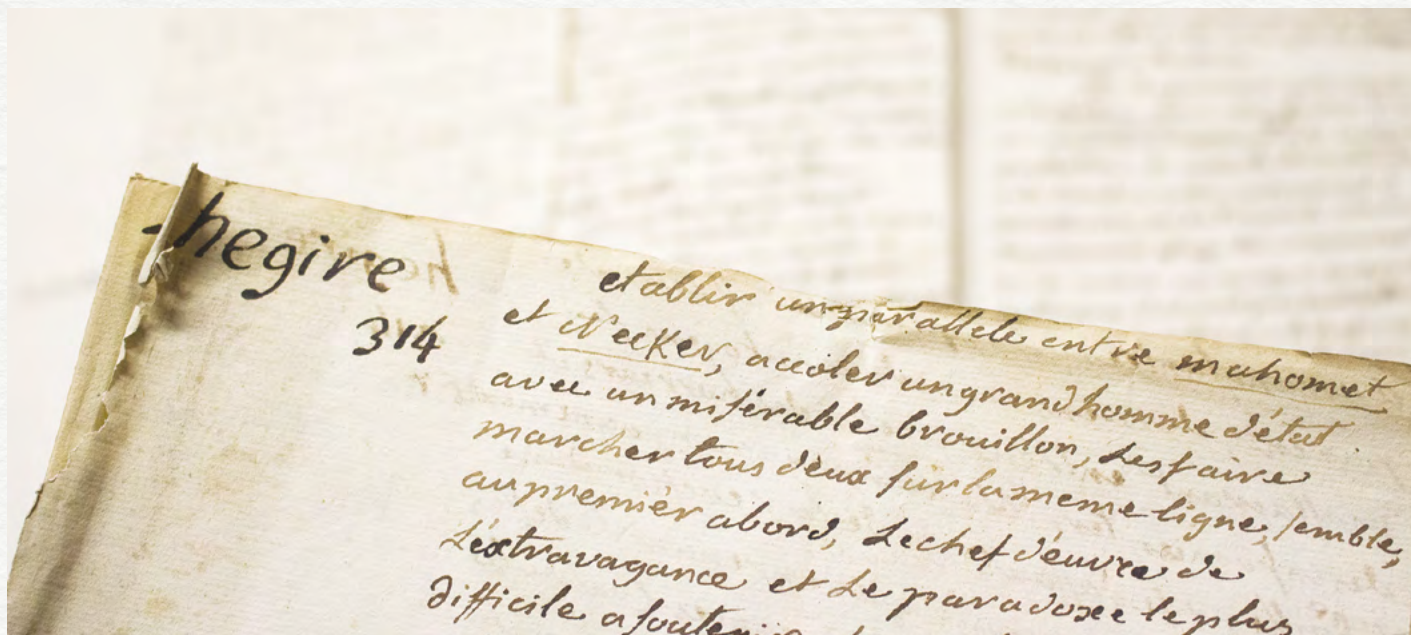 -hegire
314
etablir un parallele entre mahomet
et Necker, accoler un grand homme d'état
avec un misérable brouillon, Les faire
marcher tous deux sur la meme ligne, semble,
au premier abord, Le chef d'euvre de
L'extravagance et Le paradoxe le plus
difficile a soutenir